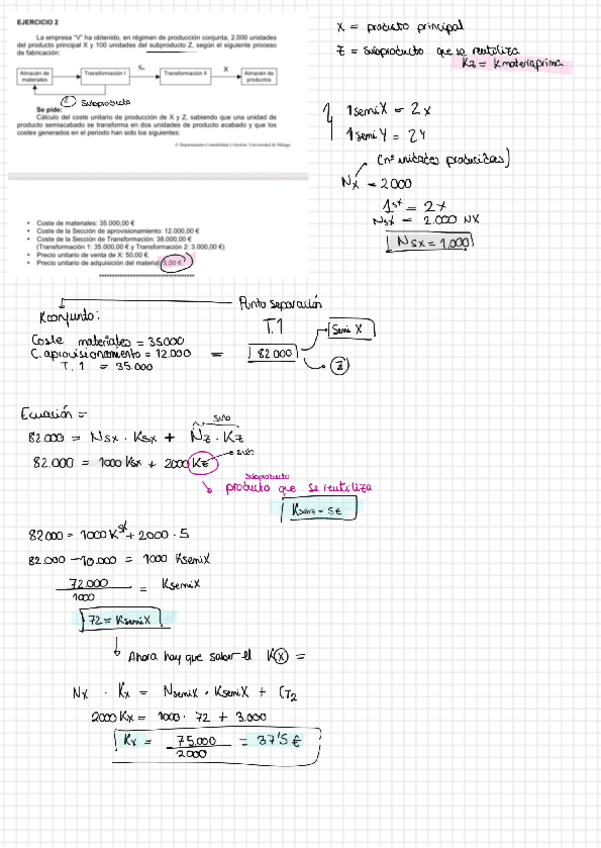 EJERCICIO 2
La empresa "V" ha obtenido, en régimen de producción conjunta, 2.000 unidades
del producto principal X y 100 unidades del subproducto Z, según el siguiente proceso
de fabricación:
Almacén de materiales
Transformación I
Transformación II
X
Almacén de productos
Z
subproducto
Se pide:
Cálculo del coste unitario de producción de X y Z, sabiendo que una unidad de
producto semiacabado se transforma en dos unidades de producto acabado y que los
costes generados en el periodo han sido los siguientes:
© Departamento Contabilidad y Gestión. Universidad de Málaga
• Coste de materiales: 35.000,00 €
• Coste de la Sección de aprovisionamiento: 12.000,00 €
• Coste de la Sección de Transformación: 38.000,00 €
(Transformación 1: 35.000,00 € y Transformación 2: 3.000,00 €)
• Precio unitario de venta de X: 50,00 €.
• Precio unitario de adquisición del material 5,00 €.
X = producto principal
Z = subproducto que se reutiliza
Kz = Kmateriaprima
1 semi X = 2 X
1 semi Y = 2 Y
(nº unidades producidas)
Nx = 2000
1sx = 2x
Nsx = 2.000 NX
Nsx = 1.000
Punto separación
Kconjunto:
T.1
Semi X
Coste materiales = 35000
C. aprovisionamiento = 12.000 = 82.000
T. 1 = 35.000
Z
Ecuación =
sub
82.000 = Nsx · Ksx + Nz · Kz
82.000 = 1000 Ksx + 2000 Kz
sub
subproducto
producto que se reutiliza
= 5€
82000 = 1000 Ksx + 2000 · 5
82.000 - 10.000 = 1000 KsemiX
72.000
1000
= KsemiX
72 = KsemiX
Ahora hay que saber el K(X) =
Nx · Kx = NsemiX · KsemiX + CT2
2000 Kx = 1000 · 72 + 3.000
Kx = 75.000 = 37'5 €
2000